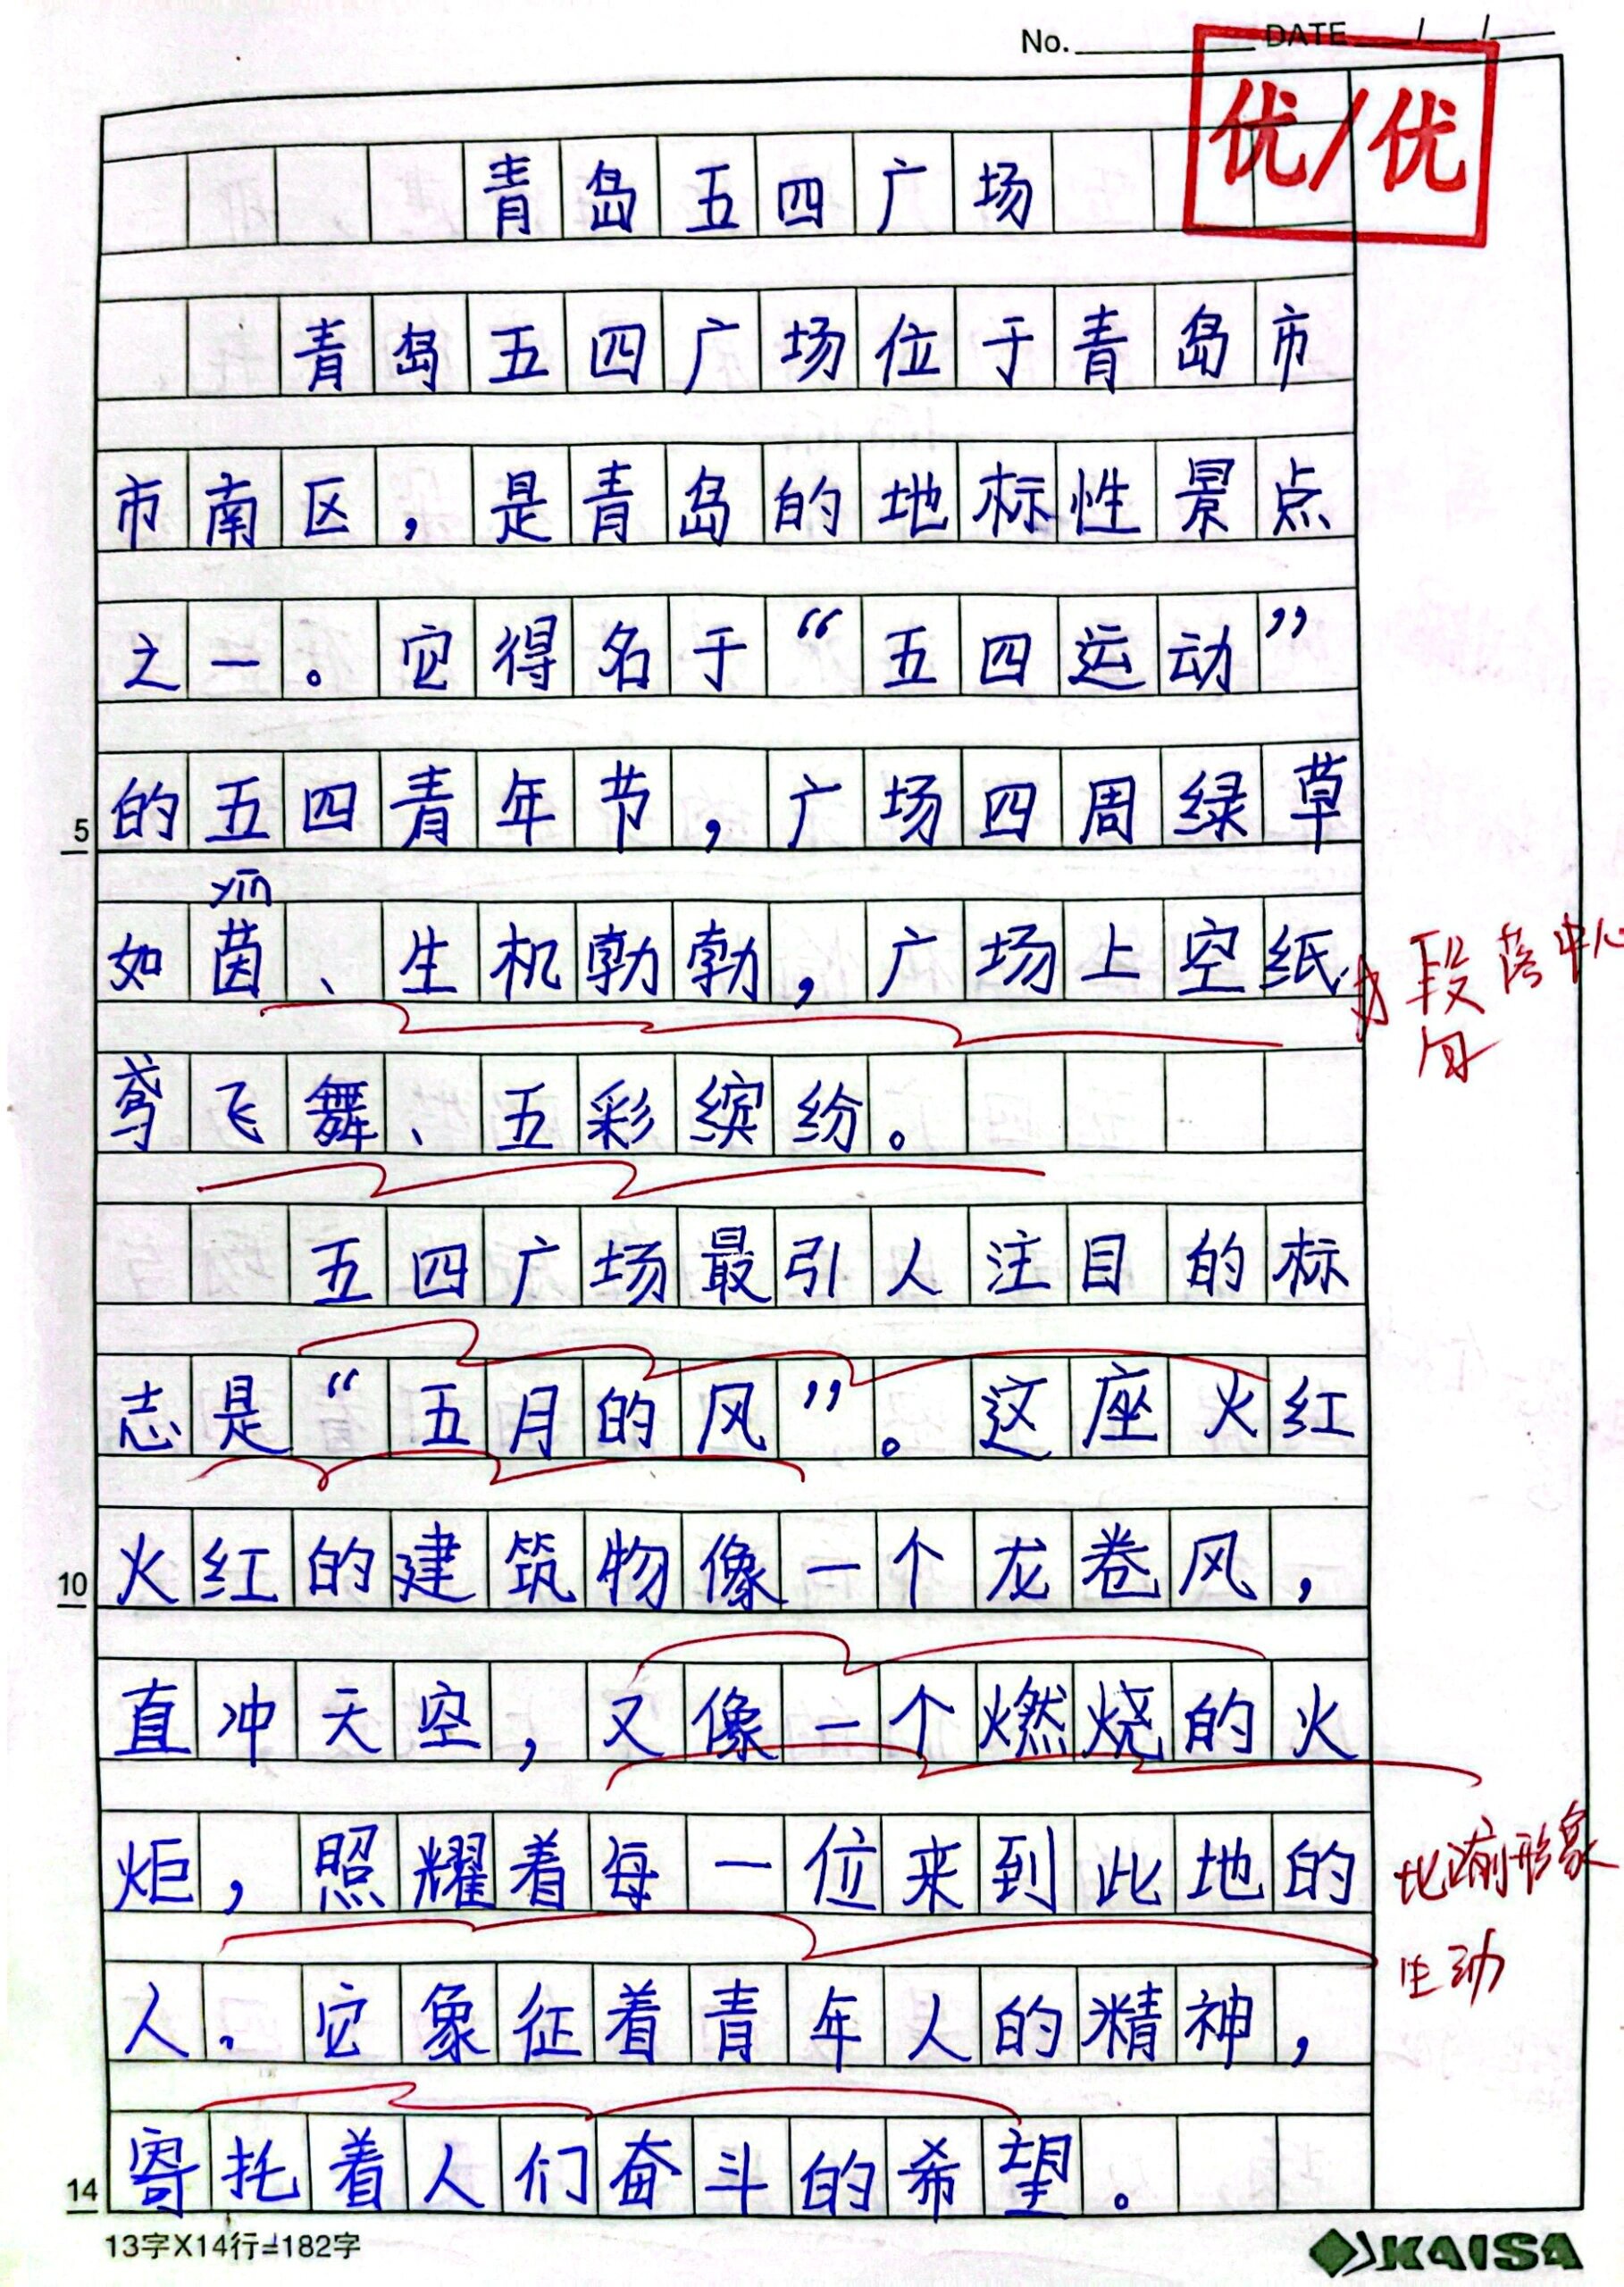 No. DATE / /
优/优
青岛五四广场
青岛五四广场位于青岛市
市南区，是青岛的地标性景点
之一。它得名于“五四运动”
的五四青年节，广场四周绿草
5
yīn
如茵、生机勃勃，广场上空纸
段落中心
句
鸢飞舞、五彩缤纷。
五四广场最引人注目的标
志是“五月的风”。这座火红
火红的建筑物像一个龙卷风，
10
直冲天空，又像一个燃烧的火
炬，照耀着每一位来到此地的
比喻形象
生动
人。它象征着青年人的精神，
寄托着人们奋斗的希望。
14
13字X14行=182字
KAISA